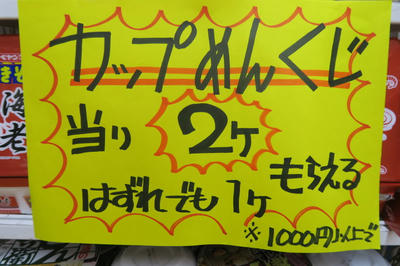 カップめんくじ
当り 2ケ
はずれでも 1ケ もらえる
※1000円以上で
海老